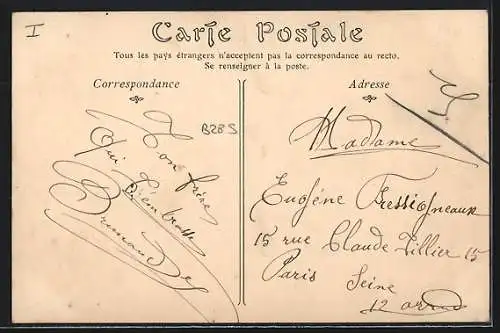 I
Carte Postale
Tous les pays étrangers n'acceptent pas la correspondance au recto.
Se renseigner à la poste.
Correspondance
Ton frère
Qui
Armand
B28S
Adresse
Madame
Eugéne Fressigneaux
15 rue Claude Tillier 15
Paris Seine
12 arrond